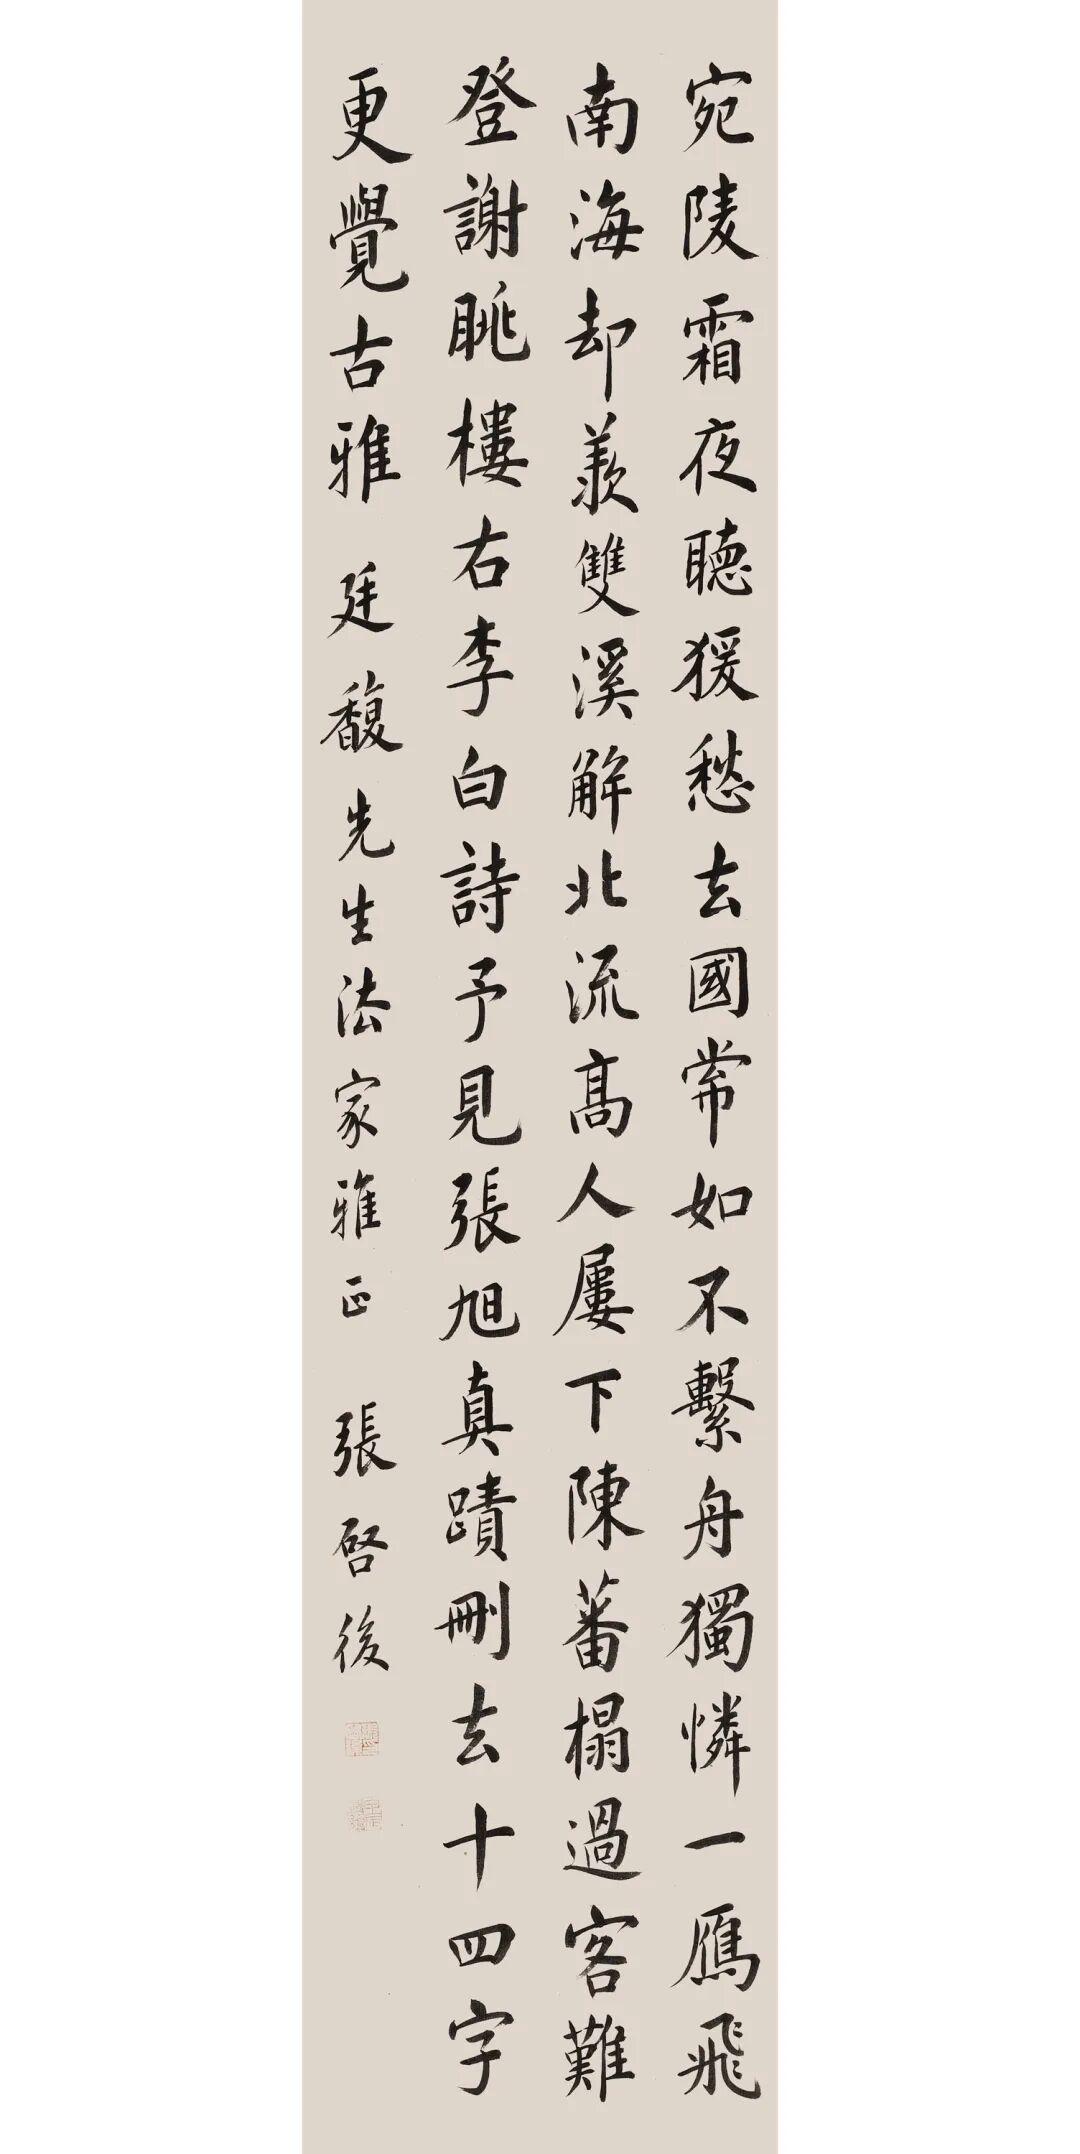 宛陵霜夜聽猨愁去國常如不繫舟獨憐一鴈飛
南海却羨雙溪解北流高人屢下陳蕃榻過客難
登謝眺樓右李白詩予見張旭真蹟刪去十四字
更覺古雅 廷馥先生法家雅正 張啓後